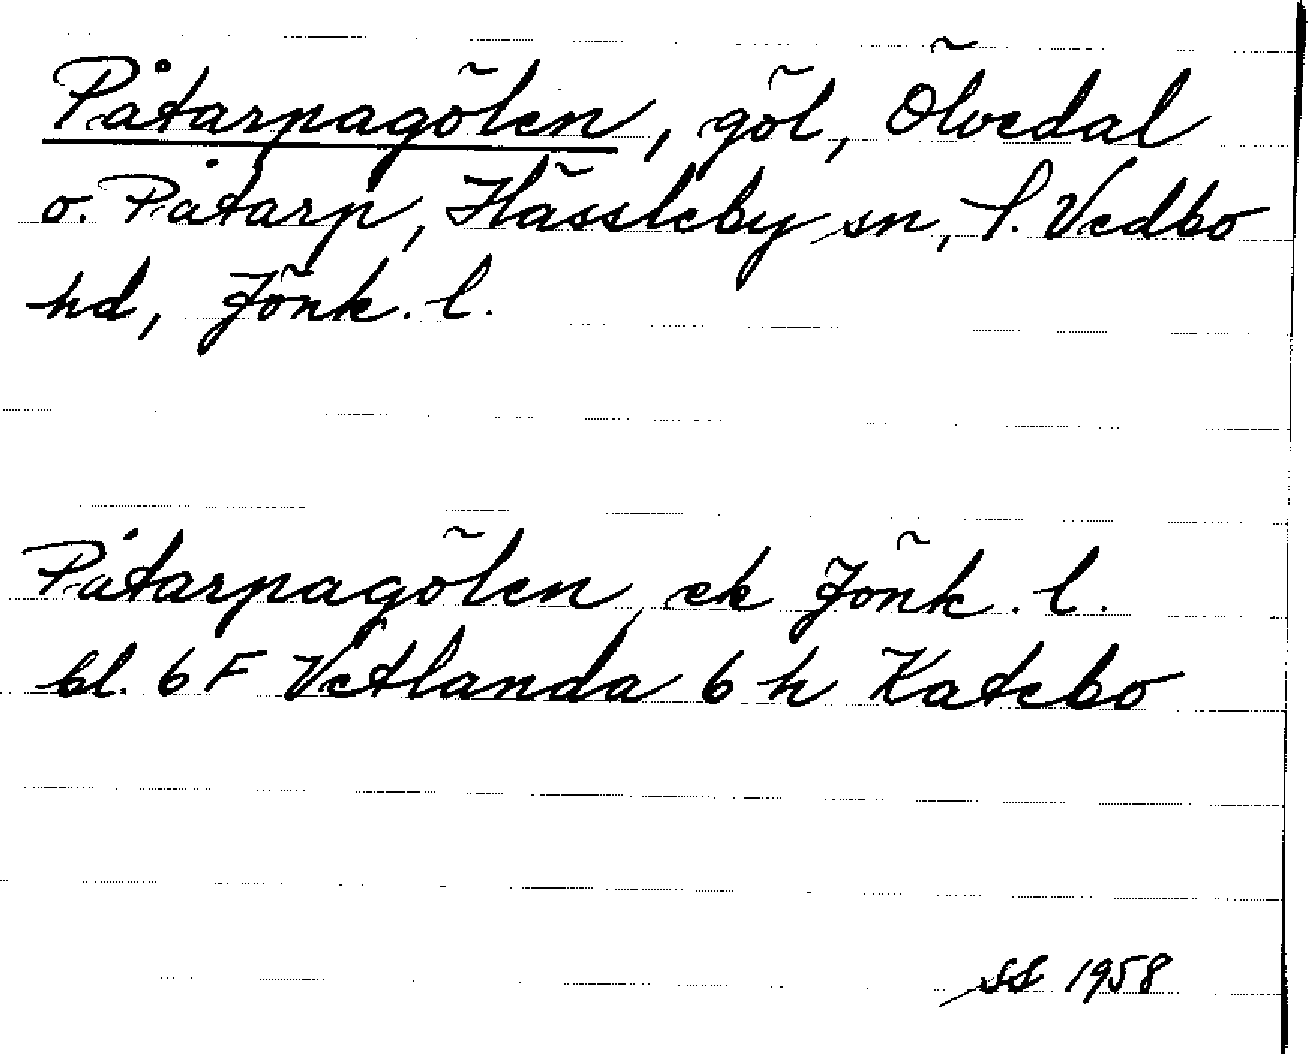 Påtarpagölen, göl, Ölvedal
o. Påtarp, Hässleby sn, S. Vedbo
hd, Jönk. l.
Påtarpagölen, ek Jönk. l.
bl. 6F Vetlanda 6 h Katebo
SS 1958